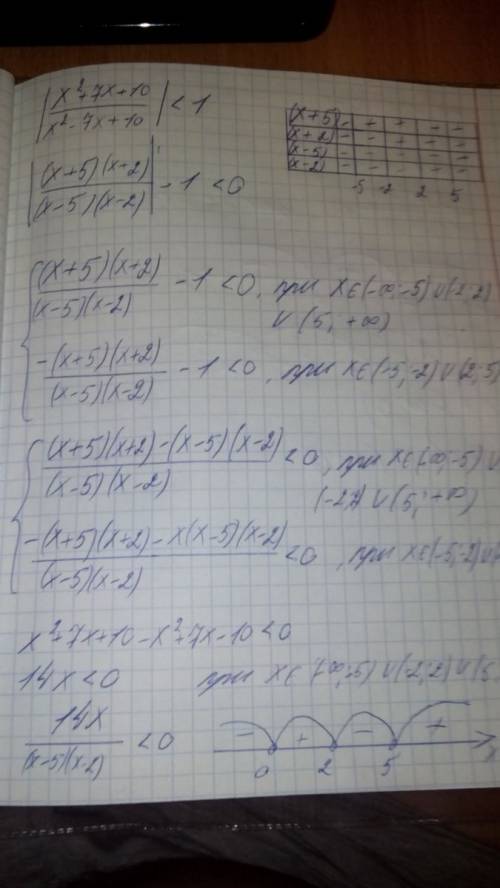 |x²+7x+10 / x²-7x+10| < 1
|(x+5)(x+2) / (x-5)(x-2)| - 1 < 0
(x+5) - + + + +
(x+2) - - + + +
(x-5) - - - -
(x-2) - - - +
-5 -2 2 5
{ (x+5)(x+2) / (x-5)(x-2) - 1 < 0, при x∈(-∞;-5)∪(-2;2)
∪(5;+∞)
-(x+5)(x+2) / (x-5)(x-2) - 1 < 0, при x∈(-5;-2)∪(2;5)
{ (x+5)(x+2)-(x-5)(x-2) / (x-5)(x-2) < 0, при x∈(-∞;-5)∪
(-2;2)∪(5;+∞)
-(x+5)(x+2)-x(x-5)(x-2) / (x-5)(x-2) < 0, при x∈(-5;-2)∪
x²+7x+10-x²+7x-10<0
14x<0 при x∈(-∞;-5)∪(-2;2)∪(5
14x / (x-5)(x-2) < 0
- + - +
0 2 5 x